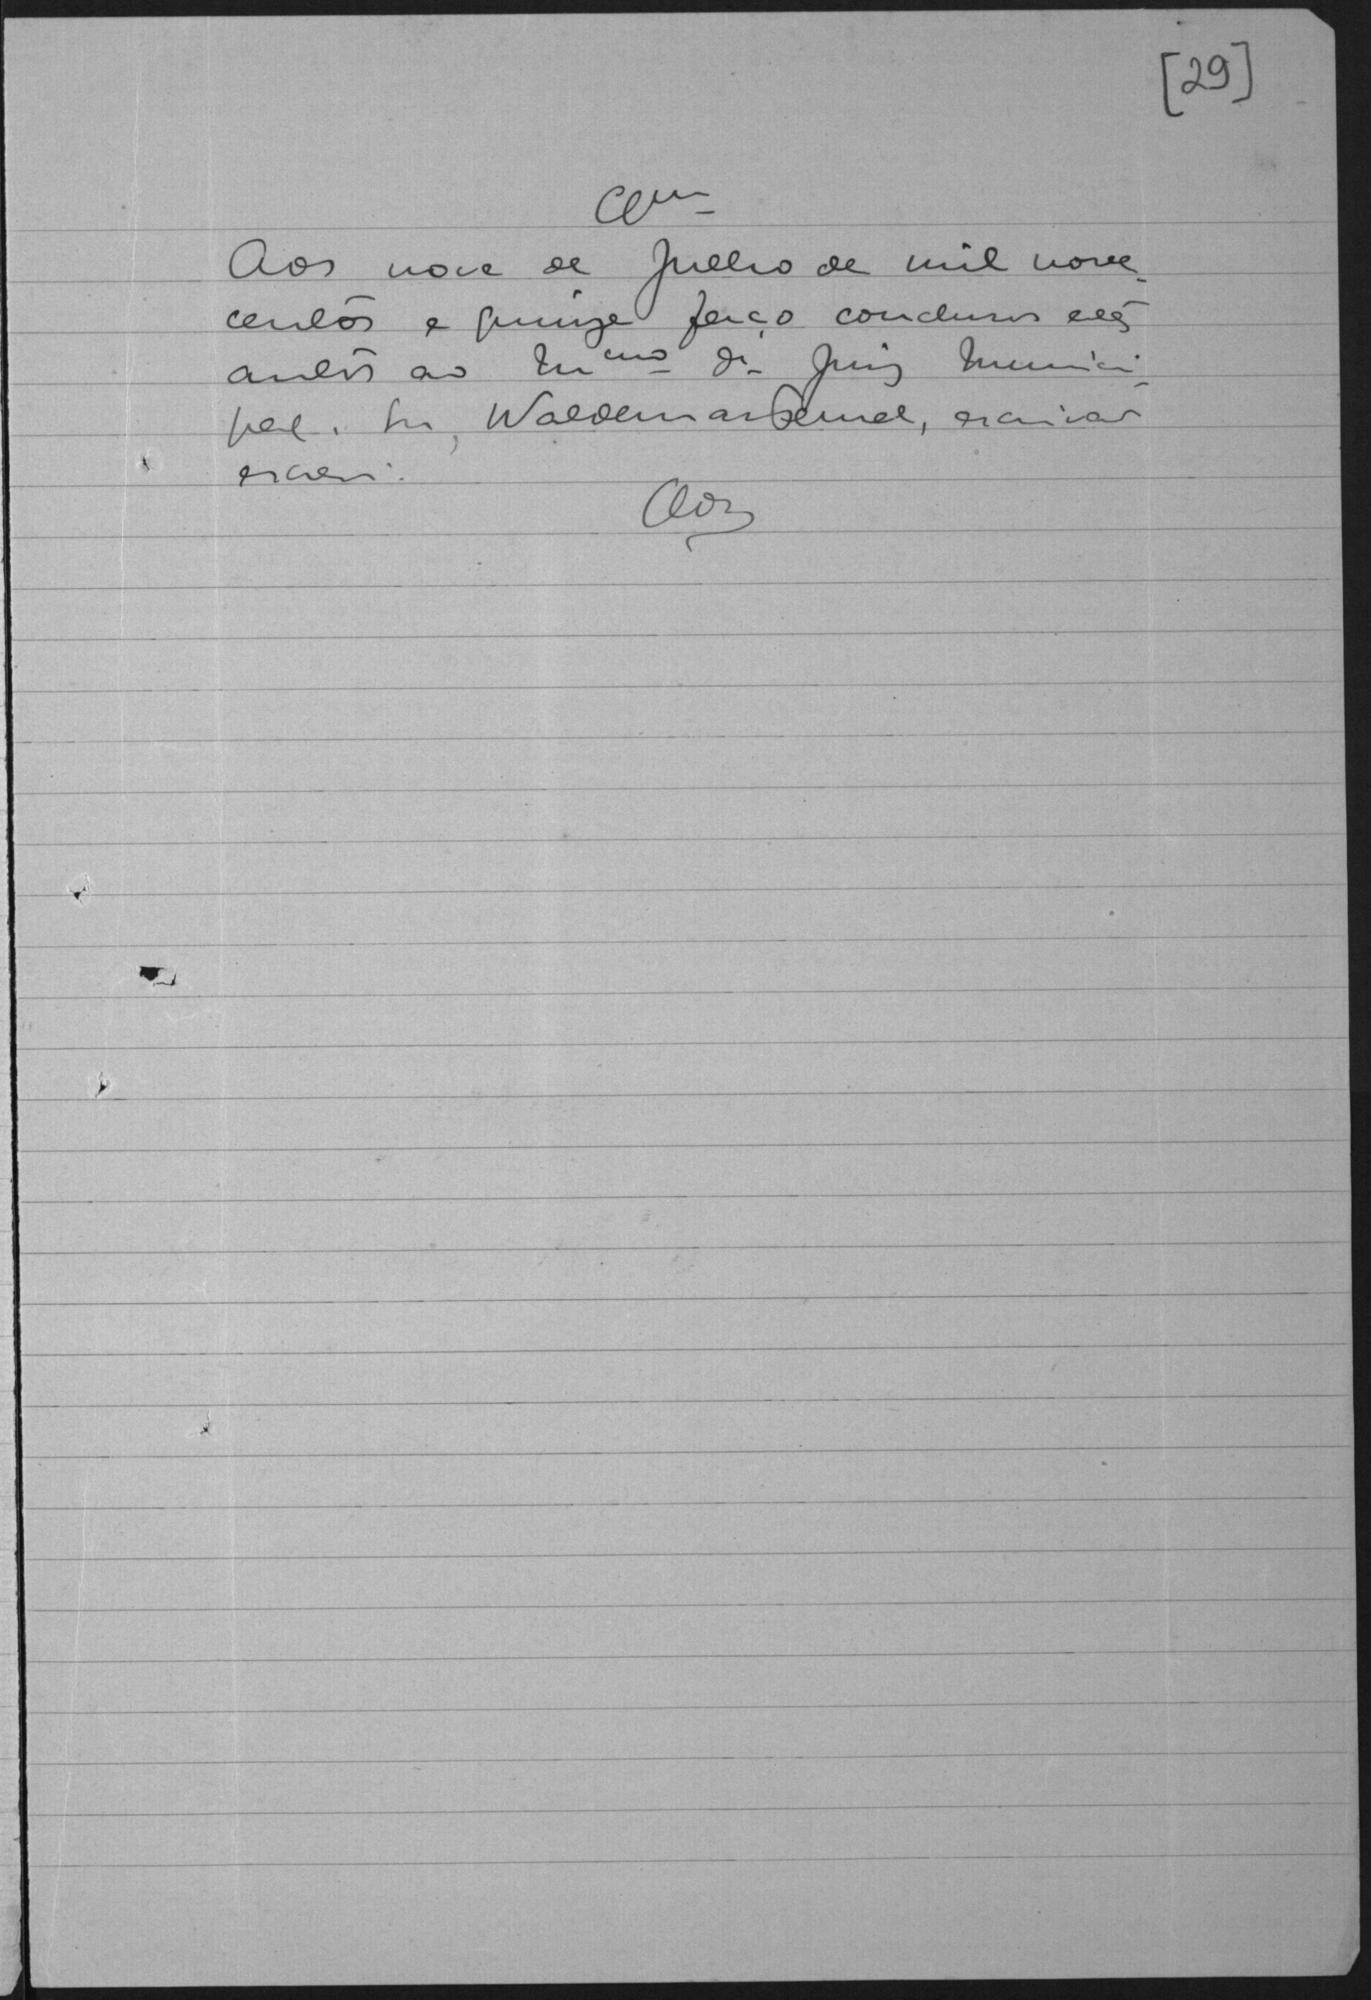 [29]
Clm
Aos nove de Julho de mil nove-
centos e quinze faço conclusos estes
autos ao Mmo Dr. Juiz Munici-
pal. Eu, Waldemar, escrivão
escrevi.
Clos